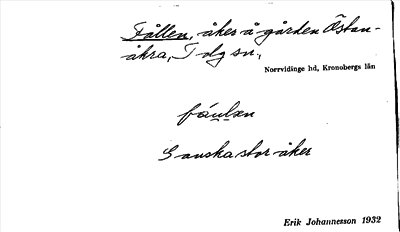 Fållen, åker å gården Östan-
åkra, Tolg sn,
Norrvidinge hd, Kronobergs län
fåulən
Ganska stor åker
Erik Johannesson 1932